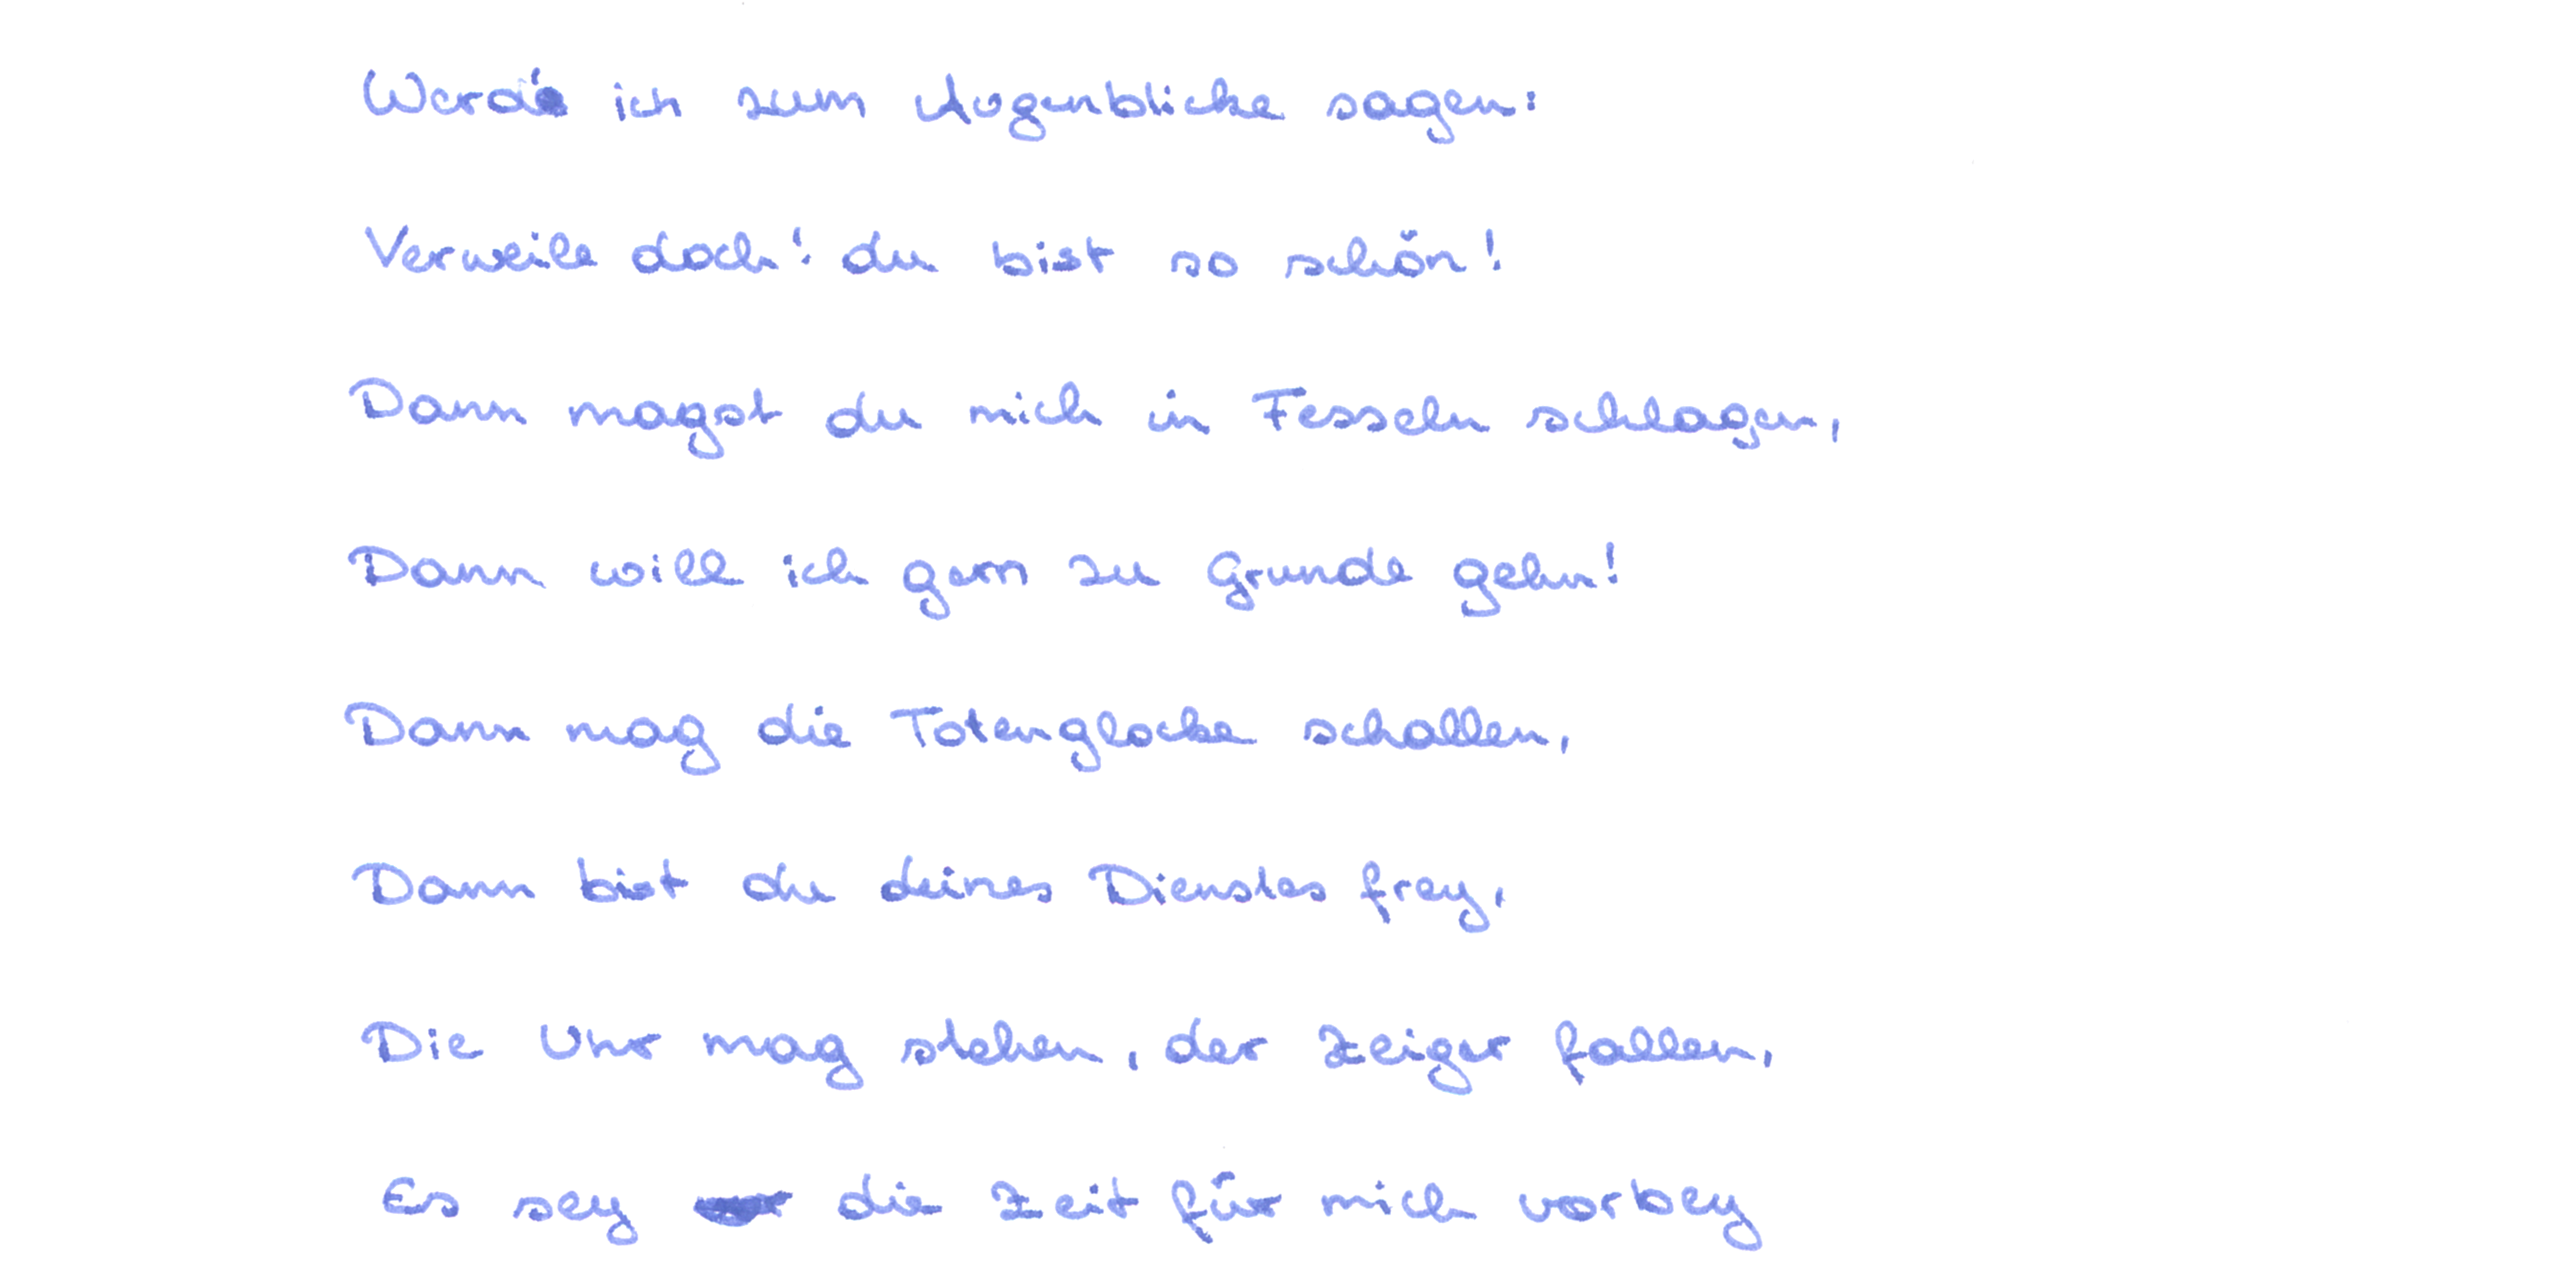 Werd' ich zum Augenblicke sagen:
Verweile doch! du bist so schön!
Dann magst du mich in Fesseln schlagen,
Dann will ich gern zu Grunde gehn!
Dann mag die Totenglocke schallen,
Dann bist du deines Dienstes frey,
Die Uhr mag stehen, der Zeiger fallen,
Es sey die Zeit für mich vorbey